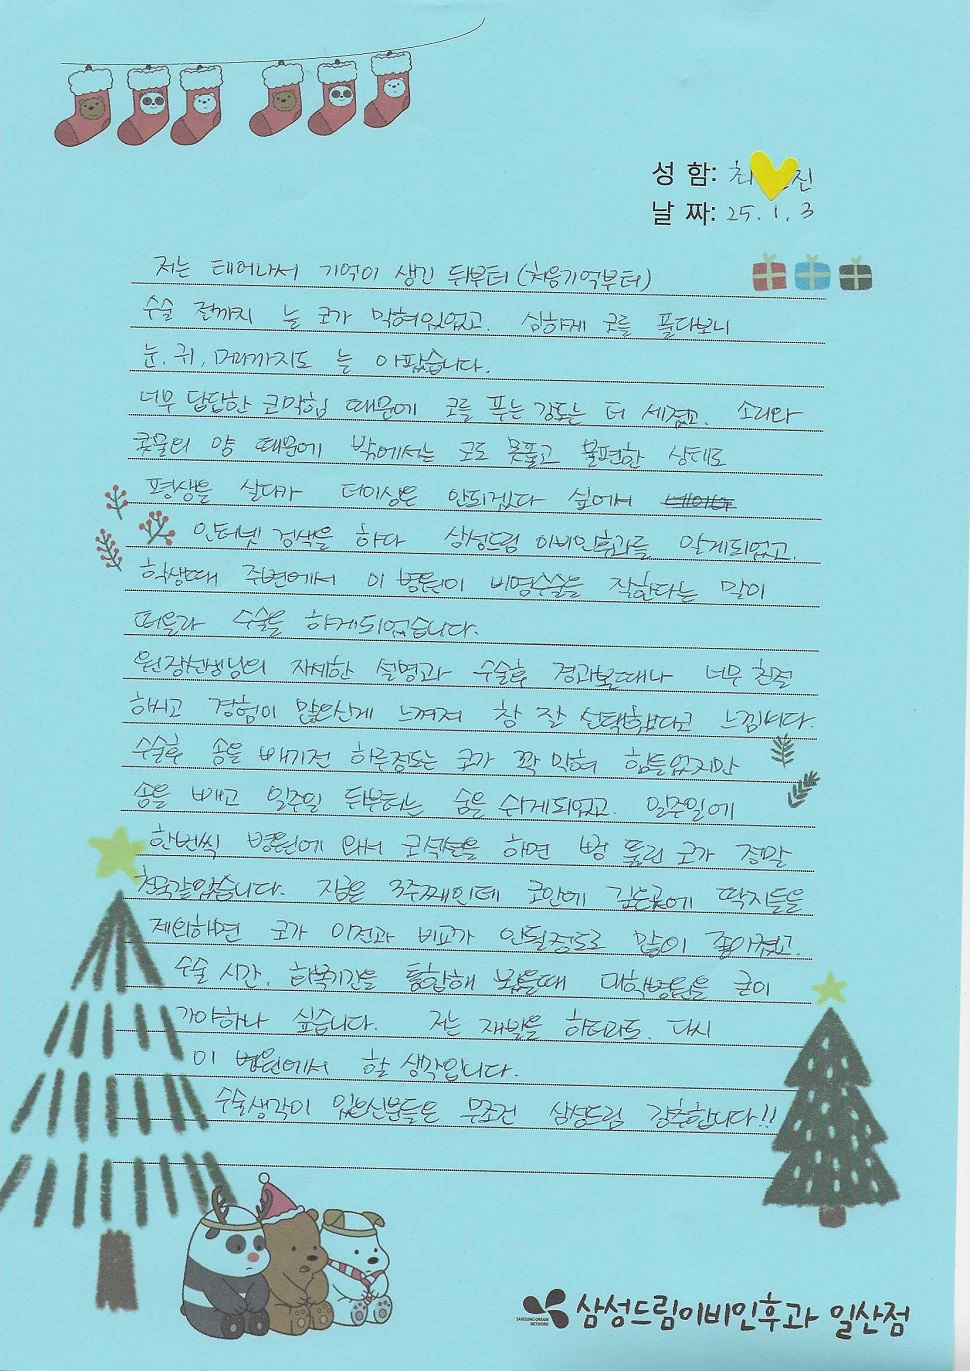 성 함: 최 진
날 짜: 25. 1. 3
저는 태어나서 기억이 생긴 뒤부터 (처음기억부터)
수술 전까지 늘 코가 막혀있었고. 심하게 코를 풀다보니
눈, 귀, 머리까지도 늘 아팠습니다.
너무 답답한 코막힘 때문에 코를 푸는 강도는 더 세졌고. 소리와
콧물의 양 때문에 밖에서는 코도 못풀고 불편한 상태로
평생을 살다가 더이상은 안되겠다 싶어서
인터넷 검색을 하다 삼성드림 이비인후과를 알게되었고.
학생때 주변에서 이 병원이 비염수술을 잘한다는 말이
떠올라 수술을 하게되었습니다.
원장선생님의 자세한 설명과 수술후 경과볼때나 너무 친절
하시고 경험이 많으신게 느껴져 참 잘 선택했다고 느낍니다.
수술후 솜을 빼기전 하루정도는 코가 꽉 막혀 힘들었지만
솜을 빼고 일주일 뒤부터는 숨을 쉬게되었고. 일주일에
한번씩 병원에 와서 코석션을 하면 뻥 뚫린 코가 정말
천국같았습니다. 지금은 3주째인데 코안에 깊은곳에 딱지들을
제외하면 코가 이전과 비교가 안될정도로 많이 좋아졌고.
수술 시간, 회복기간을 통합해 보았을때 대학병원을 굳이
가야하나 싶습니다. 저는 재발을 하더라도. 다시
이 병원에서 할 생각입니다.
수술생각이 있으신분들은 무조건 삼성드림 강추합니다!!
SAMSUNG DREAM NETWORK
삼성드림이비인후과 일산점